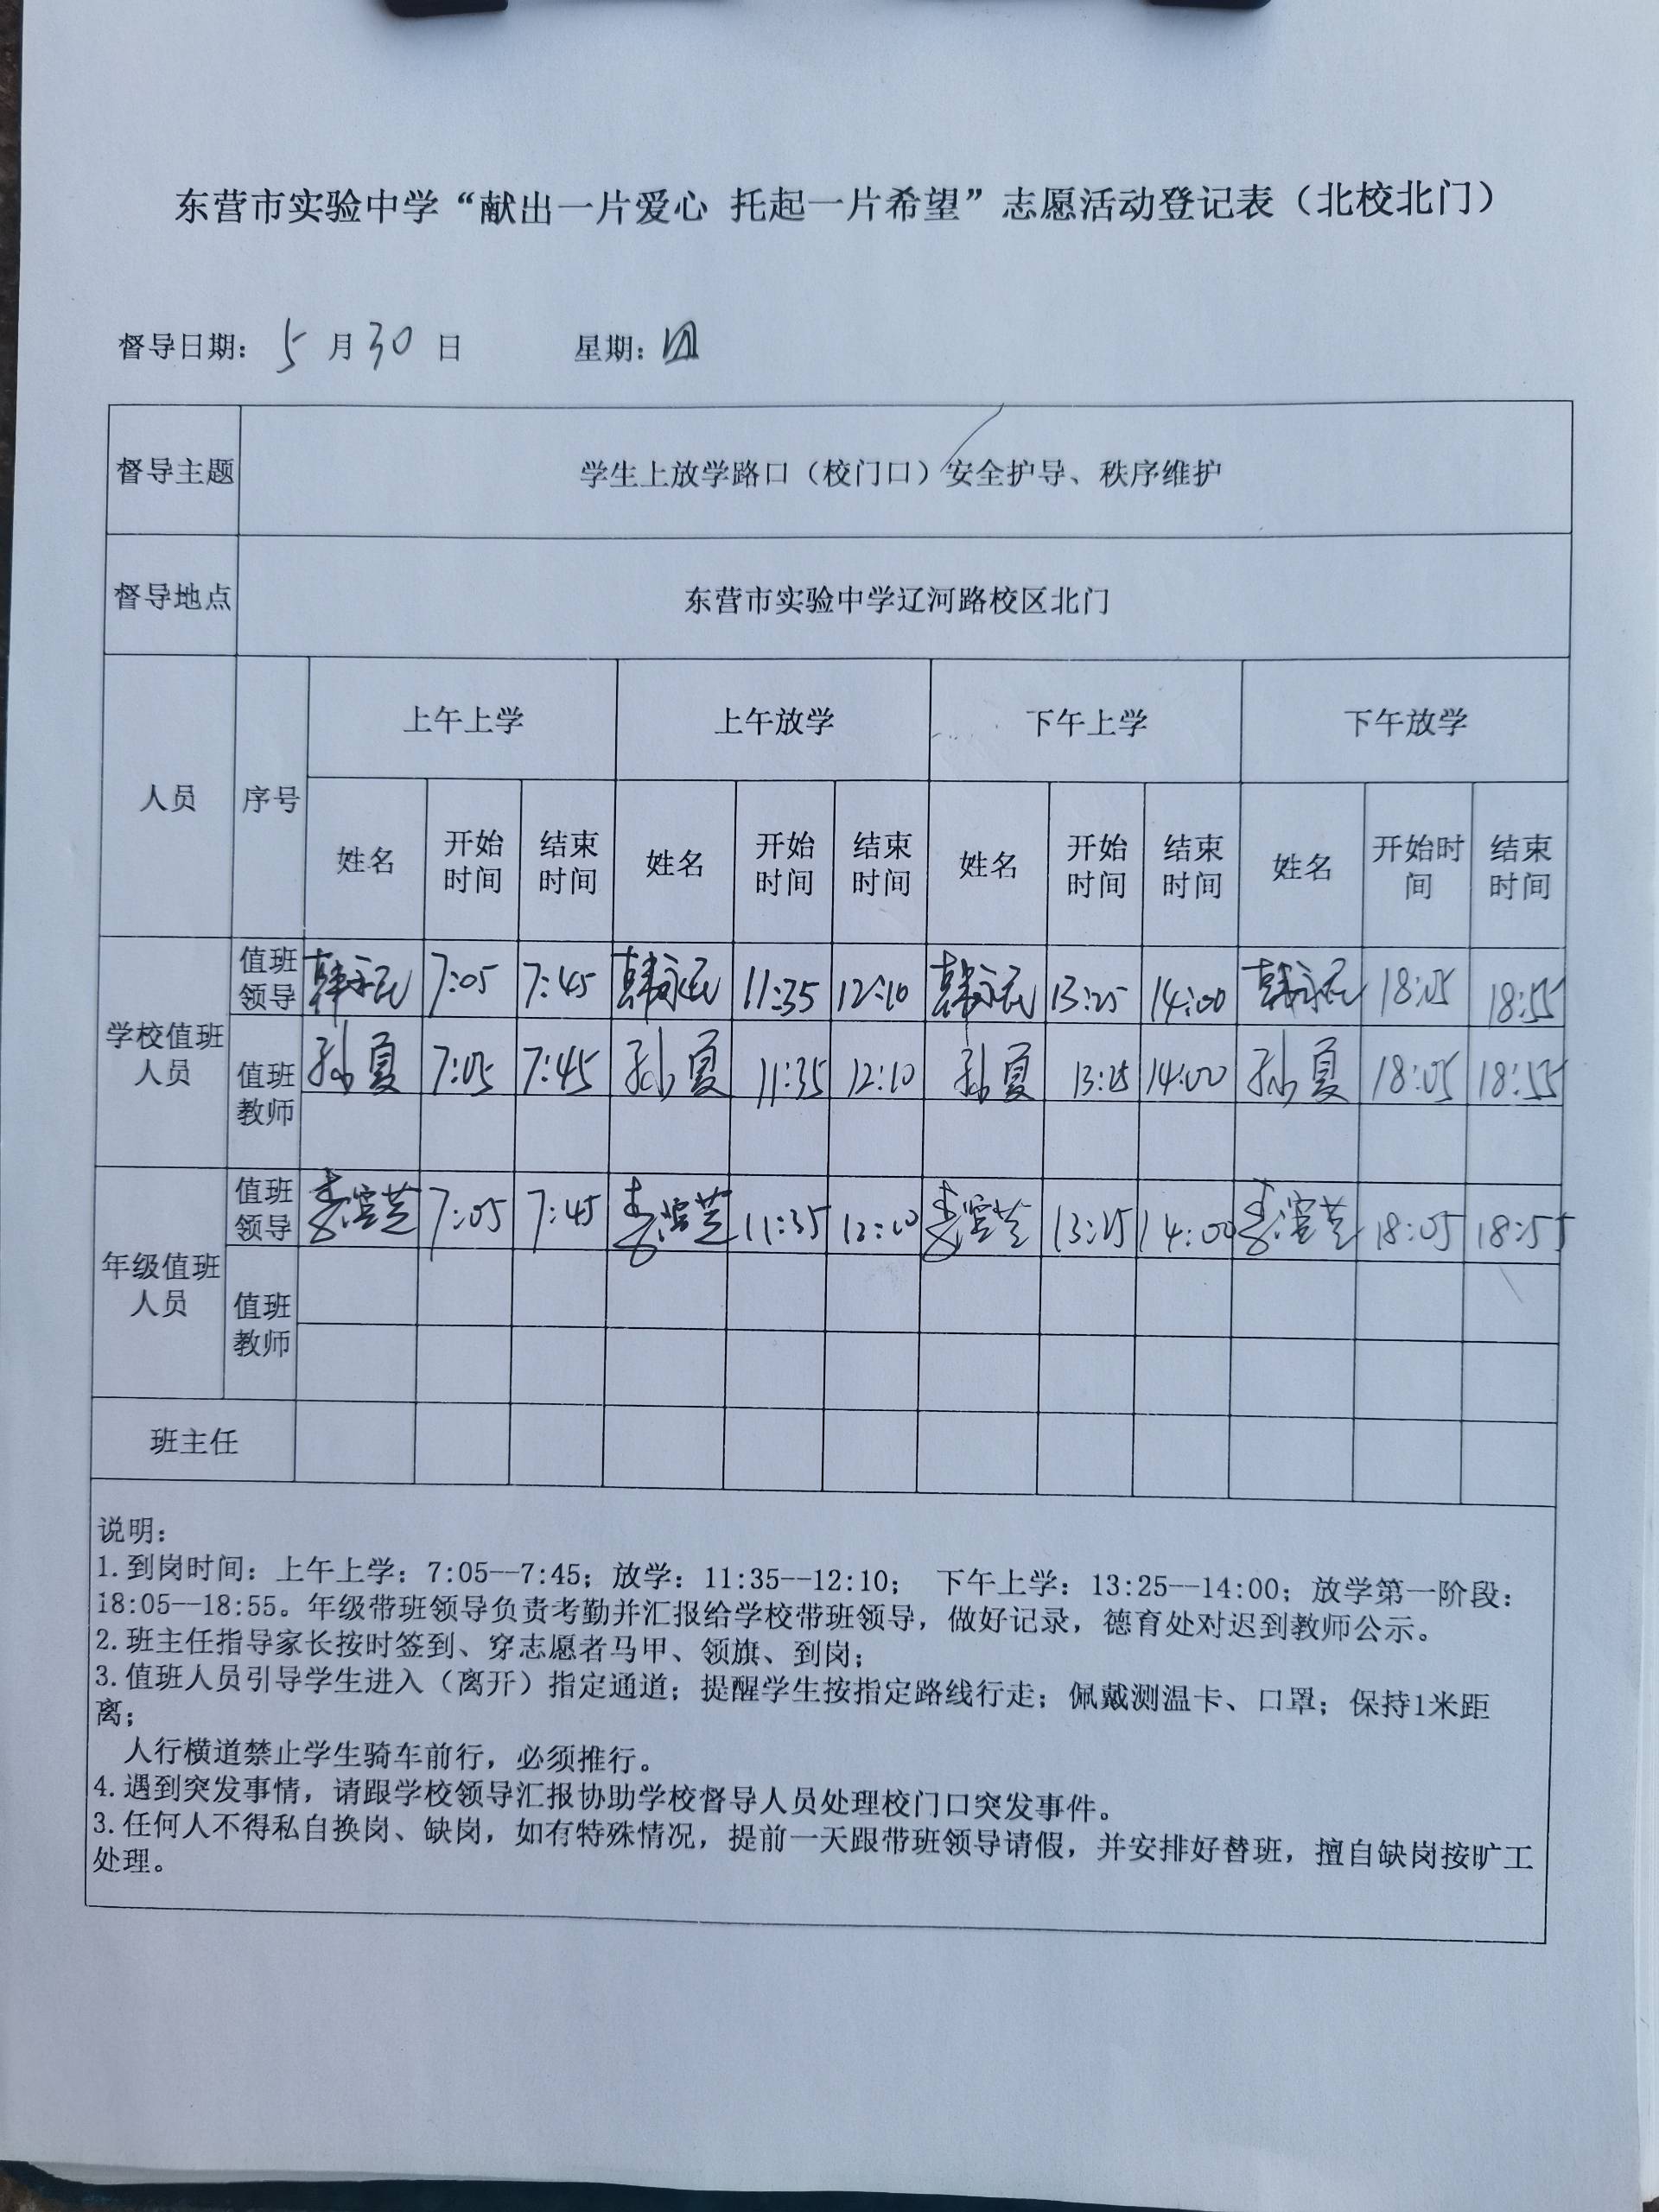 东营市实验中学“献出一片爱心 托起一片希望”志愿活动登记表（北校北门）
督导日期： 5 月 30 日 星期：四
督导主题 学生上放学路口（校门口）安全护导、秩序维护
督导地点 东营市实验中学辽河路校区北门
人员 序号 上午上学 上午放学 下午上学 下午放学
姓名 开始时间 结束时间 姓名 开始时间 结束时间 姓名 开始时间 结束时间 姓名 开始时间 结束时间
学校值班人员 值班领导 韩永民 7:05 7:45 韩永民 11:35 12:10 韩永民 13:25 14:00 韩永民 18:05 18:55
值班教师 孙夏 7:05 7:45 孙夏 11:35 12:10 孙夏 13:25 14:00 孙夏 18:05 18:55
年级值班人员 值班领导 7:05 7:45 11:35 12:10 13:25 14:00 18:05 18:55
值班教师
班主任
说明：
1.到岗时间：上午上学：7:05--7:45；放学：11:35--12:10； 下午上学：13:25--14:00；放学第一阶段：
18:05--18:55。年级带班领导负责考勤并汇报给学校带班领导，做好记录，德育处对迟到教师公示。
2.班主任指导家长按时签到、穿志愿者马甲、领旗、到岗；
3.值班人员引导学生进入（离开）指定通道；提醒学生按指定路线行走；佩戴测温卡、口罩；保持1米距
离；
人行横道禁止学生骑车前行，必须推行。
4.遇到突发事情，请跟学校领导汇报协助学校督导人员处理校门口突发事件。
3.任何人不得私自换岗、缺岗，如有特殊情况，提前一天跟带班领导请假，并安排好替班，擅自缺岗按旷工
处理。